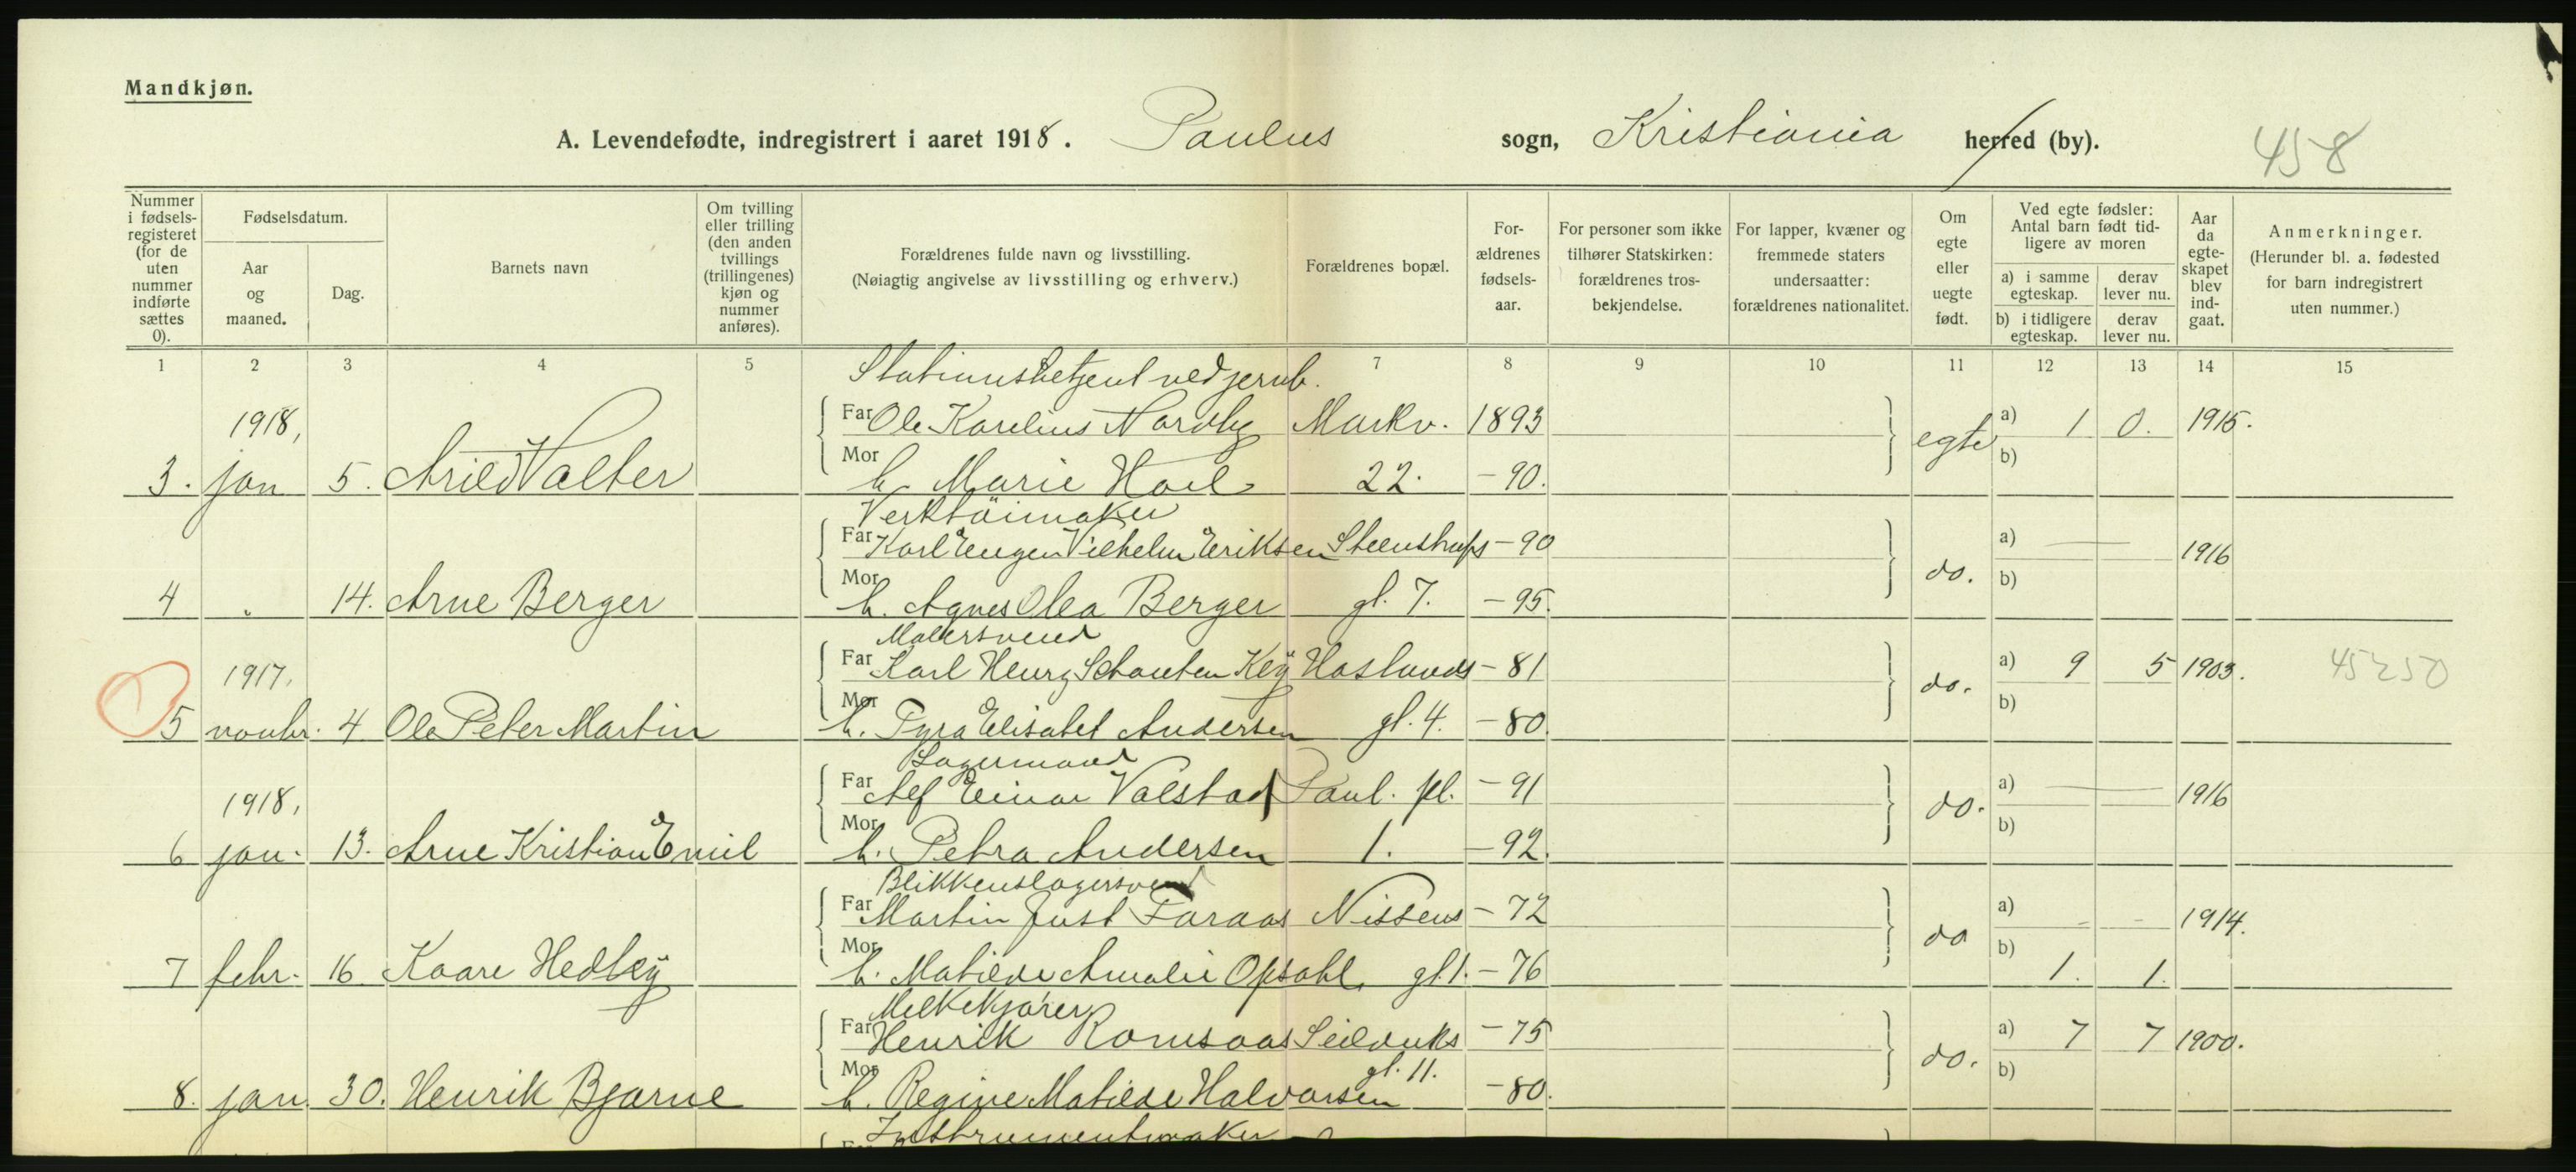 Mandkjøn.
A. Levendefødte, indregistrert i aaret 1918. Paulus sogn, Kristiania herred (by). 458
Nummer i fødsels-registeret (for de uten nummer indførte sættes 0).
Fødselsdatum.
Aar og maaned.
Dag.
Barnets navn
Om tvilling eller trilling (den anden tvillings (trillingenes) kjøn og nummer anføres).
Forældrenes fulde navn og livsstilling.
(Nøiagtig angivelse av livsstilling og erhverv.)
Forældrenes bopæl.
For-ældrenes fødsels-aar.
For personer som ikke tilhører Statskirken: forældrenes tros-bekjendelse.
For lapper, kvæner og fremmede staters undersaatter: forældrenes nationalitet.
Om egte eller uegte født.
Ved egte fødsler: Antal barn født tid-ligere av moren
a) i samme egteskap. derav lever nu.
b) i tidligere egteskap. derav lever nu.
Aar da egte-skapet blev ind-gaat.
Anmerkninger.
(Herunder bl. a. fødested for barn indregistrert uten nummer.)
1 2 3 4 5 7 8 9 10 11 12 13 14 15
Stationsbetjent ved jernb.
1918, Far Ole Karelius Nordby Markv. 1893 egte a) 1 0. 1915.
3. jan 5. Arild Valter Mor h. Marie Hoel 22. -90. b)
Verktöimaker
Far Karl Eugen Vilhelm Eriksen Steenstrups -90 do. a) — — 1916
4 " 14. Arne Berger Mor h. Agnes Olea Berger gt. 7. -95. b)
Malersvend
1917. Far Karl Henry Schouten Keÿ Haslunds -81 do. a) 9 5 1903. 45250
5 novbr. 4 Ole Peter Martin Mor h. Tyra Elisabet Andersen gt. 4. -80. b)
Lagermand
1918, Far Alf Einar Valstad Paul. pl. -91 do. a) — — 1916
6 jan. 13. Arne Kristian Emil Mor h. Petra Andersen 1. -92. b)
Blikkenslagersvend
Far Martin Just Faraas Nissens -72 do a) - - 1914.
7 febr. 16 Kaare Hedley Mor h. Matilde Amalie Opsahl gt 1. -76 b) 1. 1.
Melkekjører
Far Henrik Romsaas Seilduks -75 do. a) 7 7 1900.
8. jan. 30. Henrik Bjarne Mor h. Regine Matilde Halvorsen gt. 11. -80. b)
Instrumentmaker